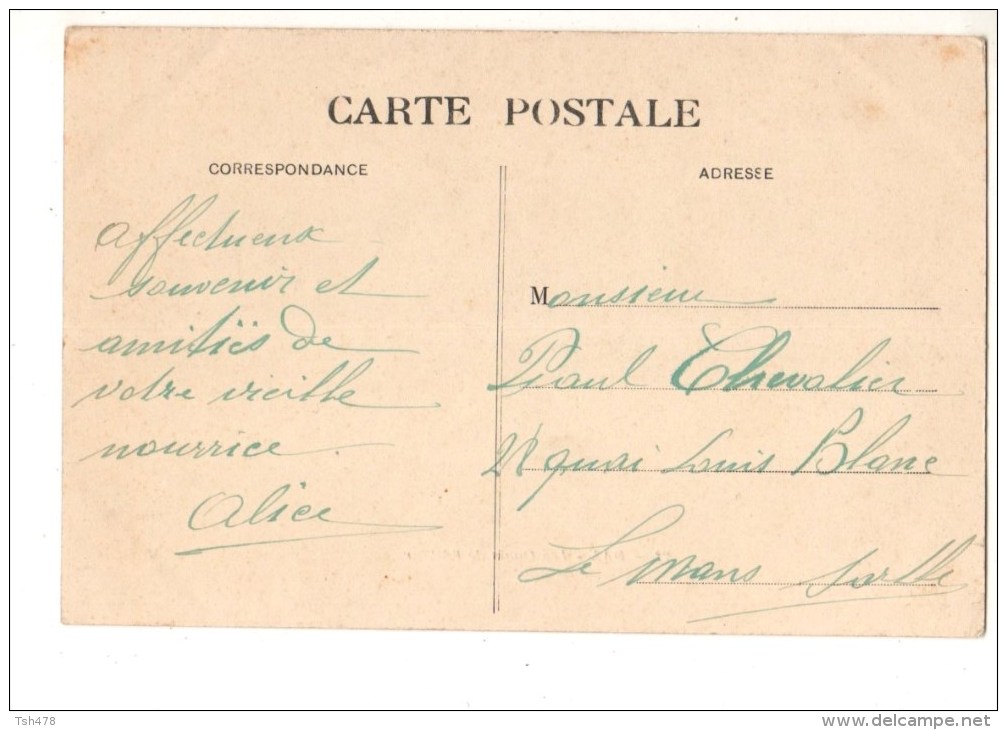 CARTE POSTALE
CORRESPONDANCE
affectueux
souvenir et
amitiés de
votre vieille
nourrice
Alice
ADRESSE
Monsieur
Paul Chevalier
quai Louis Blanc
Le Mans Sarthe
Tsh478
www.delcampe.net